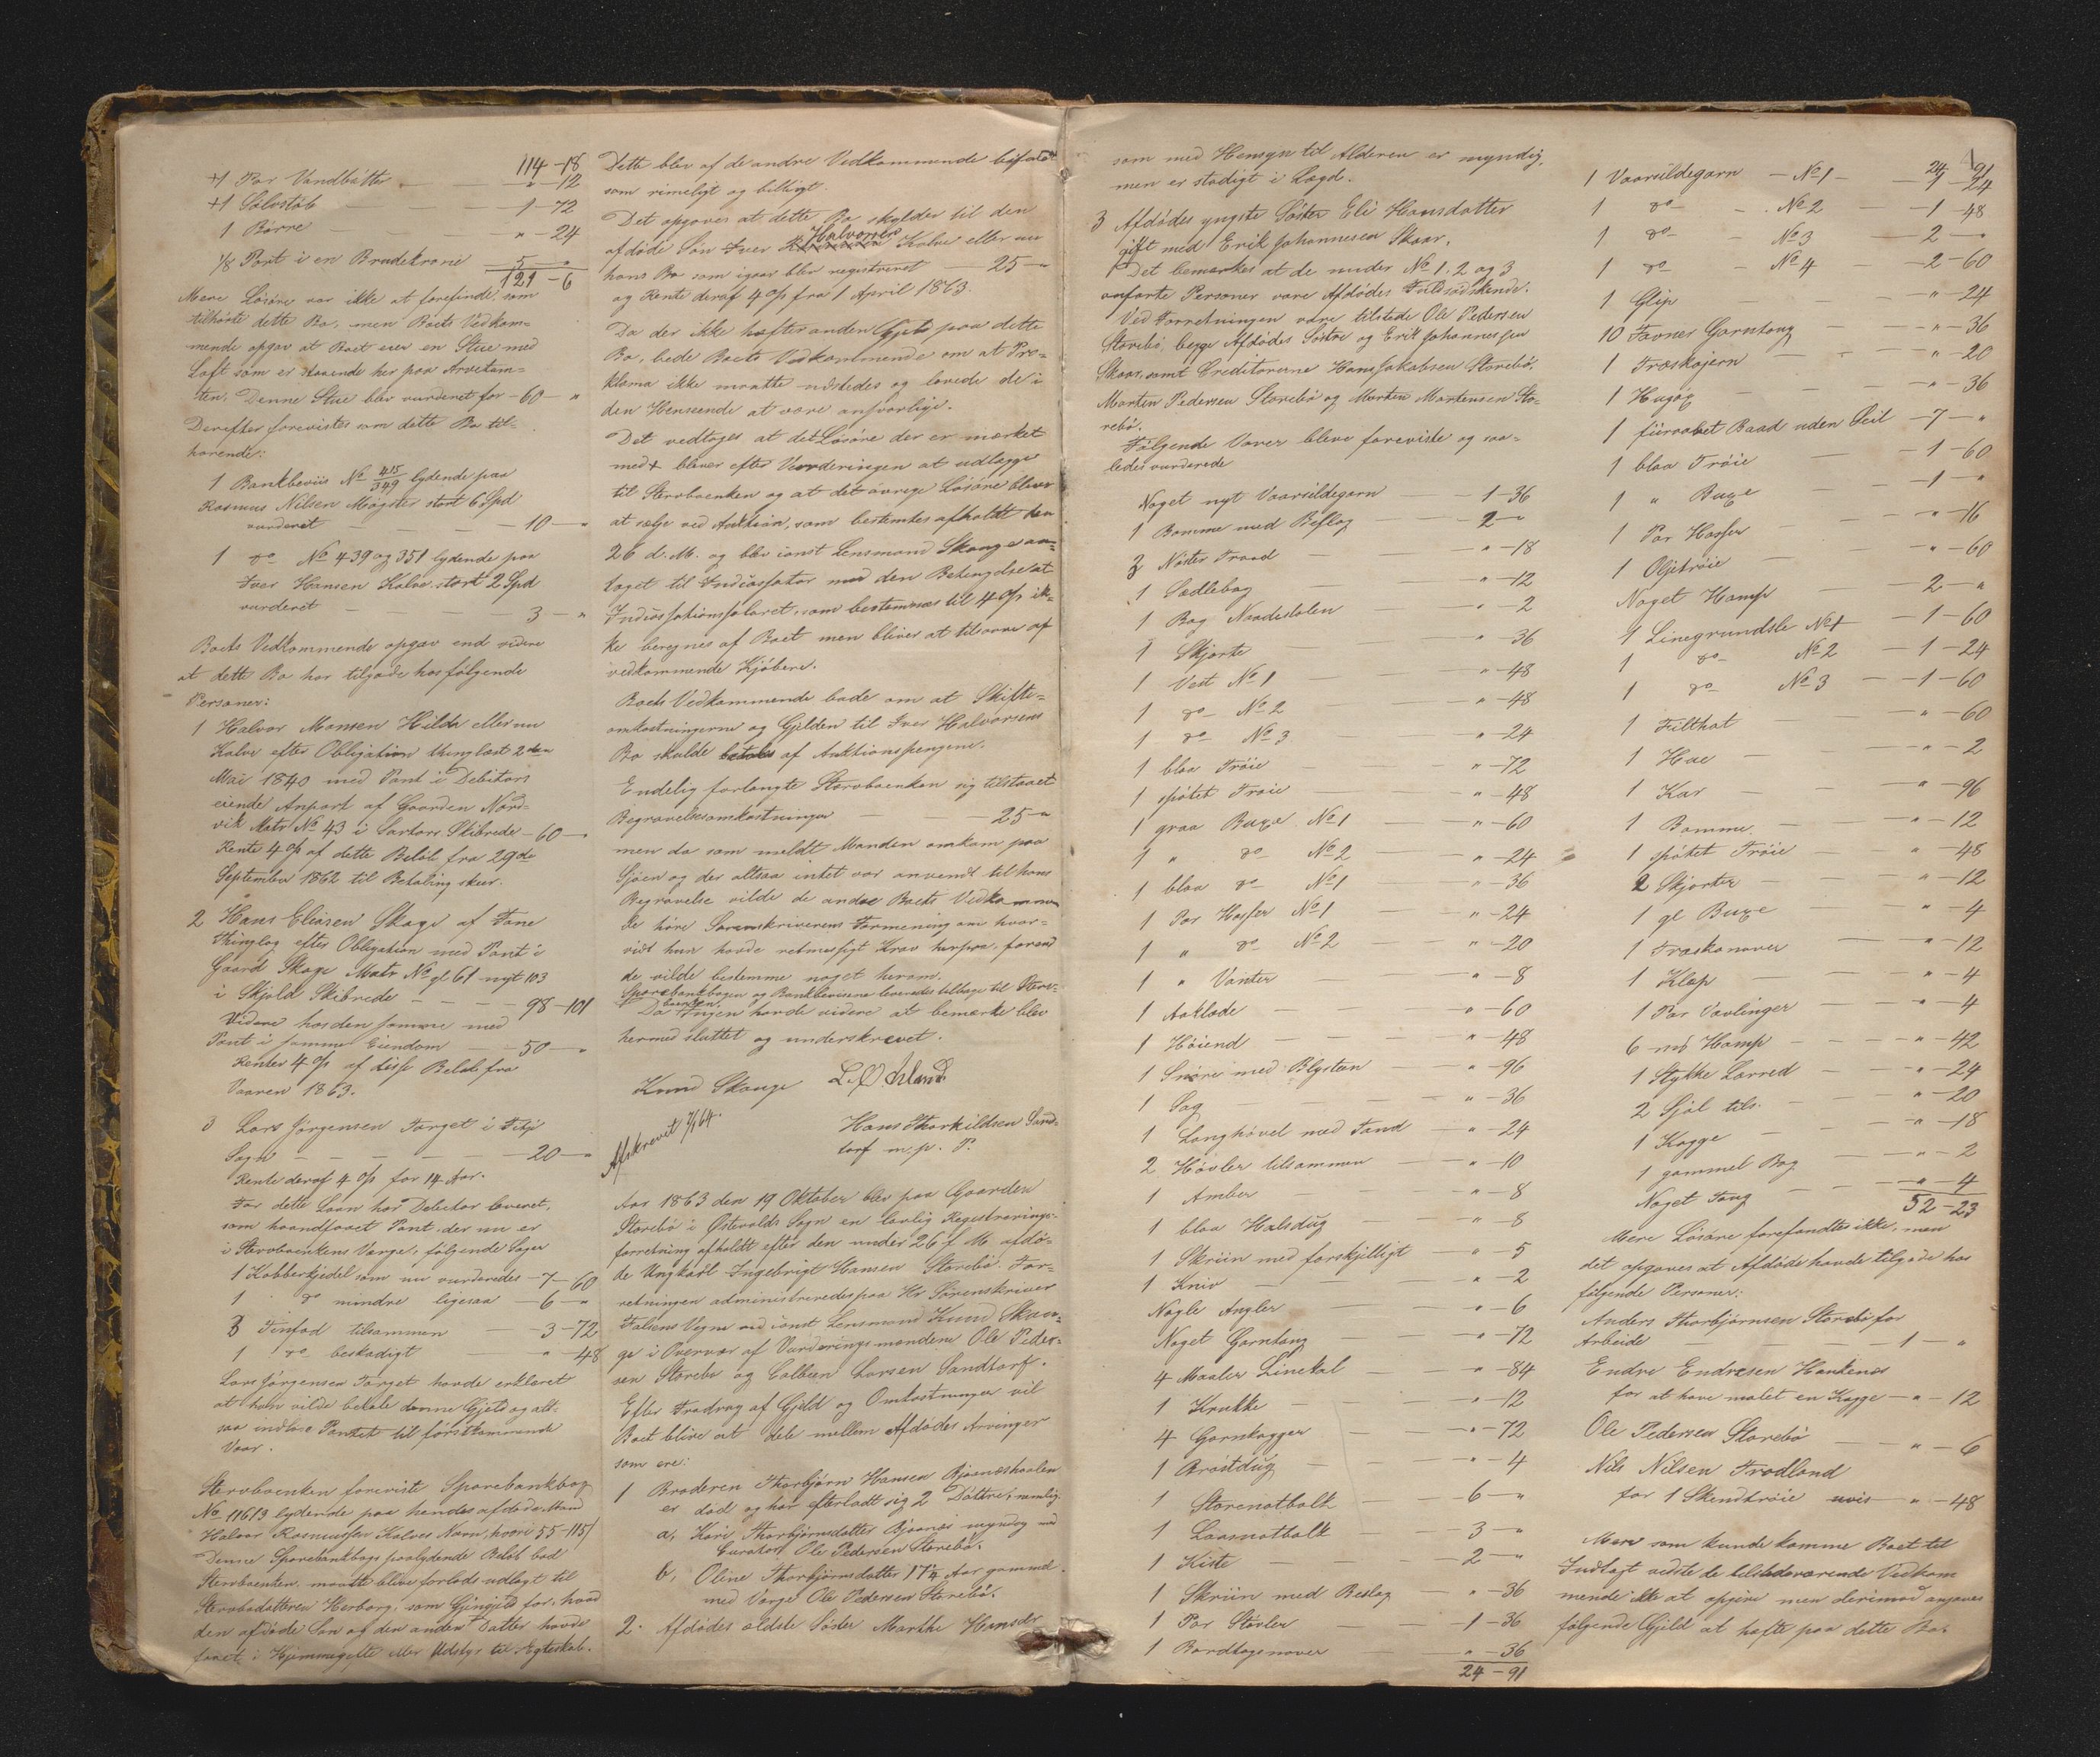 114-18
+1 Par Vandbøtter — " -12
+1 Solvstøb — 1-72
1 Børre — " -24
1/8 Part i en Brudekrone — 5 - "
121-6
Mere Løsøre var ikke at forefinde, som
tilhørte dette Bo, men Boets Vedkom-
mende opgav at Boet eier en Stue med
Loft som er staaende her paa Arvetom-
ten. Denne Stue blev vurderet for -60- "
Derefter forevistes som dette Bo til-
hørende:
1 Bankbeviis No 415/349 lydende paa
Rasmus Nilsen Møgster stort 6 Spd
vurderet — 10- "
1 do No 439 og 351 lydende paa
Iver Hansen Kalve stort 2 Spd
vurderet — 3- "
Boets Vedkommende opgav end videre
at dette Bo har tilgode hos følgende
Personer:
1 Halvor Monsen Hilda eller nu
Kalve efter Obligation thinglæst 2den
Mai 1840 med Pant i Debitors
eiende Anpart af Gaarden Nord-
vik Matr No 43 i Sartors Skibrede -60- "
Rente 4 % af dette Beløb fra 29de
September 1862 til Betaling skeer.
2 Hans Eliasen Skage af Fane
Thinglag efter Obligation med Pant i
Gaard Skage Matr No gl 61 nyt 103
i Skjold Skibrede — 98-101
Videre hos den samme med
Pant i samme Eiendom — 50- "
Renter 4 % af disse Beløb fra
Vaaren 1863.
3 Lars Jørgensen Torget i Fitje
Sogn — 20- "
Rente deraf 4 % for 14 Aar.
For dette Laan har Debitor leveret,
som haandfaaet Pant, der nu er
i Stervboenkens Værge, følgende Sager
1 Kobberkjedel som nu vurderedes -7-60
1 do mindre ligesaa -6- "
3 Tinfad tilsammen — 3-72
1 do beskadigt — " -48
Lars Jørgensen Torget havde erklæret
at han vilde betale denne Gjeld og alt-
saa indløse Pantet til førstkommende
Vaar.
Stervboenken foreviste Sparebankbog
No 11613 lydende paa hendes afdøde Mand
Halvor Rasmussen Kalves Navn, hvori 55-115/
Denne Sparebankbogs paalydende Beløb bad
Stervboenken maatte blive forlods udlagt til
Stervbodatteren Herborg, som Gjengjeld for, hvad
den afdøde Søn og den anden Datter havde
faaet i Hjemmegifte eller Udstyr til Ægteskab.
Dette blev af de andre Vedkommende bifaldt
som rimeligt og billigt.
Det opgaves at dette Bo skylder til den
afdøde Søn Iver Halvorsen Kalve eller nu
hans Bo som igaar blev registreret — 25- "
og Rente deraf 4 % fra 1 April 1863.
Da der ikke hæfter anden Gjeld paa dette
Bo, bede Boets Vedkommende om at Pro-
klama ikke maatte udstedes og lovede de i
den Henseende at være ansvarlige.
Det vedtoges at det Løsøre der er mærket
med + bliver efter Vurderingen at udlægge
til Stervboenken og at det øvrige Løsøre bliver
at sælge ved Auktion, som bestemtes afholdt den
26 d. M. og blev const Lensmand Skauge an-
taget til Inkassator med den Betingelse at
Inkassationssalæret, som bestemmes til 4 % ik-
ke beregnes af Boet men bliver at tilsvare af
vedkommende Kjøbere.
Boets Vedkommende bade om at Skifte-
omkostningerne og Gjelden til Iver Halvorsens
Bo skulde betales af Auktionspengene.
Endelig forlangte Stervboenken sig tilstaaet
Begravelsesomkostninger — 25- "
men da som meldt Manden omkom paa
Sjøen og der altsaa intet var anvendt til hans
Begravelse vilde de andre Boets Vedkommen
de høre Sorenskriverens Formening om hvor-
vidt hun havde retmæssigt Krav herpaa, forend
de vilde bestemme noget herom.
Sparebankbogen og Bankbeviserne leveredes tilbage til Sterv-
boenken.
Da Ingen havde videre at bemærke blev
hermed sluttet og underskrevet.
Knud Skauge L. O. Arland
Afskrevet 7/1 64.
Hans Thorkildsen Sand-
torf m. p. P.
Aar 1863 den 19 Oktober blev paa Gaarden
Storebø i Østevolds Sogn en lovlig Registrerings-
forretning afholdt efter den under 26 f. M. afdø-
de Ungkarl Ingebrigt Hansen Storebø. For-
retningen administreredes paa Hr Sorenskriver
Falsens Vegne ved const Lensmand Knud Skau-
ge i Overvær af Vurderingsmændene Ole Peder-
sen Storebø og Colbein Larsen Sandtorf.
Efter Fradrag af Gjeld og Omkostninger vil
Boet blive at dele mellem Afdødes Arvinger
som ere:
1 Broderen Thorbjørn Hansen Bjoenæshaalen
er død og har efterladt sig 2 Døttre, nemlig:
a, Kari Thorbjørnsdatter Bjoenæs myndig med
Curator Ole Pedersen Storebø.
b, Oline Thorbjørnsdatter 17¼ Aar gammel
med Værge Ole Pedersen Storebø.
2. Afdødes ældste Søster Marthe Hansdr
som med Hensyn til Alderen er myndig,
men er stadigt i Lægd.
3 Afdødes yngste Søster Eli Hansdatter
gift med Erik Johannesen Skaar.
Det bemærkes at de under No 1, 2 og 3
anførte Personer vare Afdødes Fuldsødskende.
Ved Forretningen vare tilstede Ole Pedersen
Storebø, begge Afdødes Søstre og Erik Johannessen
Skaar, samt Creditorerne Hans Jakobsen Storebø,
Morten Pedersen Storebø og Morten Mortensen Sto-
rebø.
Følgende Varer bleve foreviste og saa-
ledes vurderede
Noget nyt Vaarsildegarn — 1-36
1 Bomme med Beslag — 2- "
3 Nøster Traad — " -18
1 Sædlebog — " -12
1 Bog Naadestolen — " -2
1 Skjorte — " -36
1 Vest No 1 — " -48
1 do No 2 — " -48
1 do No 3 — " -24
1 blaa Trøie — " -72
1 spøtet Trøie — " -48
1 graa Buxe No 1 — " -60
1 " do No 2 — " -24
1 blaa do No 1 — " -36
1 Par Hosser No 1 — " -24
1 " do No 2 — " -20
1 " Vanter — " -8
1 Aaklæde — " -60
1 Høiend — " -48
1 Snøre med Blysten — " -96
1 Sag — " -36
1 Langhøvel med Tand — " -24
2 Høvler tilsammen — " -10
1 Amber — " -8
1 blaa Halsdug — " -8
1 Skriin med forskjelligt — " -5
1 Kniv — " -2
Nogle Angler — " -6
Noget Garntaug — " -72
4 Maaler Linekal — " -84
1 Krukke — " -12
4 Garnkagger — " -72
1 Brøstdug — " -4
1 Storenotbolk — 6- "
1 Laasnotbolk — 3- "
1 Kiste — 2- "
1 Skriin med Beslag — " -36
1 Par Støvler — 1-36
1 Bordtagenover — " -36
24-91
24-91
1 Vaarsildegarn — No 1 — 1-24
1 do — No 2 — 1-48
1 do — No 3 — 2- "
1 do — No 4 — 2-60
1 Glip — " -24
10 Favner Garntaug — " -36
1 Træskojern — " -20
1 Hugøx — " -36
1 fiirroret Baad uden Seil -7- "
1 blaa Trøie — 1-60
1 " Buxe — 1- "
1 Par Hosser — " -16
1 Oljetrøie — " -60
Noget Hamp — 2- "
1 Linegrundsle No 1 — 1-60
1 do No 2 — 1-24
1 do No 3 — 1-60
1 Filthat — " -60
1 Hue — " -2
1 Kar — " -96
1 Bomme — " -12
1 spøtet Trøie — " -48
2 Skjorter — " -12
1 gl Buxe — " -4
1 Træskonaver — " -12
1 Kløp — " -4
1 Par Vavlinger — " -4
6 mrk Hamp — " -42
1 Stykke Lærred — " -24
2 Sjøl tils. — " -20
1 Kagge — " -18
1 gammel Bog — " -2
Noget Taug — " -4
52-23
Mere Løsøre forefandtes ikke, men
det opgaves at Afdøde havde tilgode hos
følgende Personer:
Anders Thorbjørnsen Storebø for
Arbeide — 1- "
Endre Endresen Haukenæs
for at have malet en Kagge — " -12
Ole Pedersen Storebø — " -6
Nils Nilsen Trædland
for 1 Skindtrøie uvis — " -48
Mere som kunde komme Boet til
Indtægt vidste de tilstedeværende Vedkom
mende ikke at opgive men derimod angaves
følgende Gjeld at hæfte paa dette Bo.